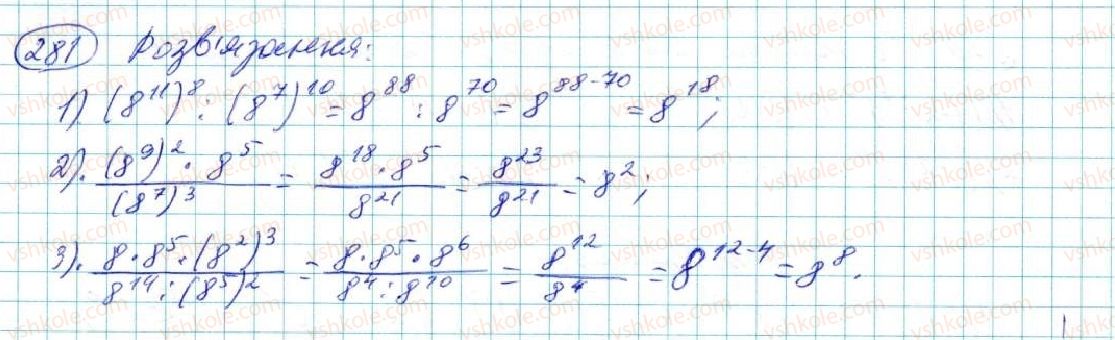 281 Розв'язання:
1) (8^11)^8 : (8^7)^10 = 8^88 : 8^70 = 8^88-70 = 8^18;
2). (8^9)^2 · 8^5 / (8^7)^3 = 8^18 · 8^5 / 8^21 = 8^23 / 8^21 = 8^2;
3). 8 · 8^5 · (8^2)^3 / 8^14 : (8^5)^2 = 8 · 8^5 · 8^6 / 8^4 : 8^10 = 8^12 / 8^4 = 8^12-4 = 8^8.